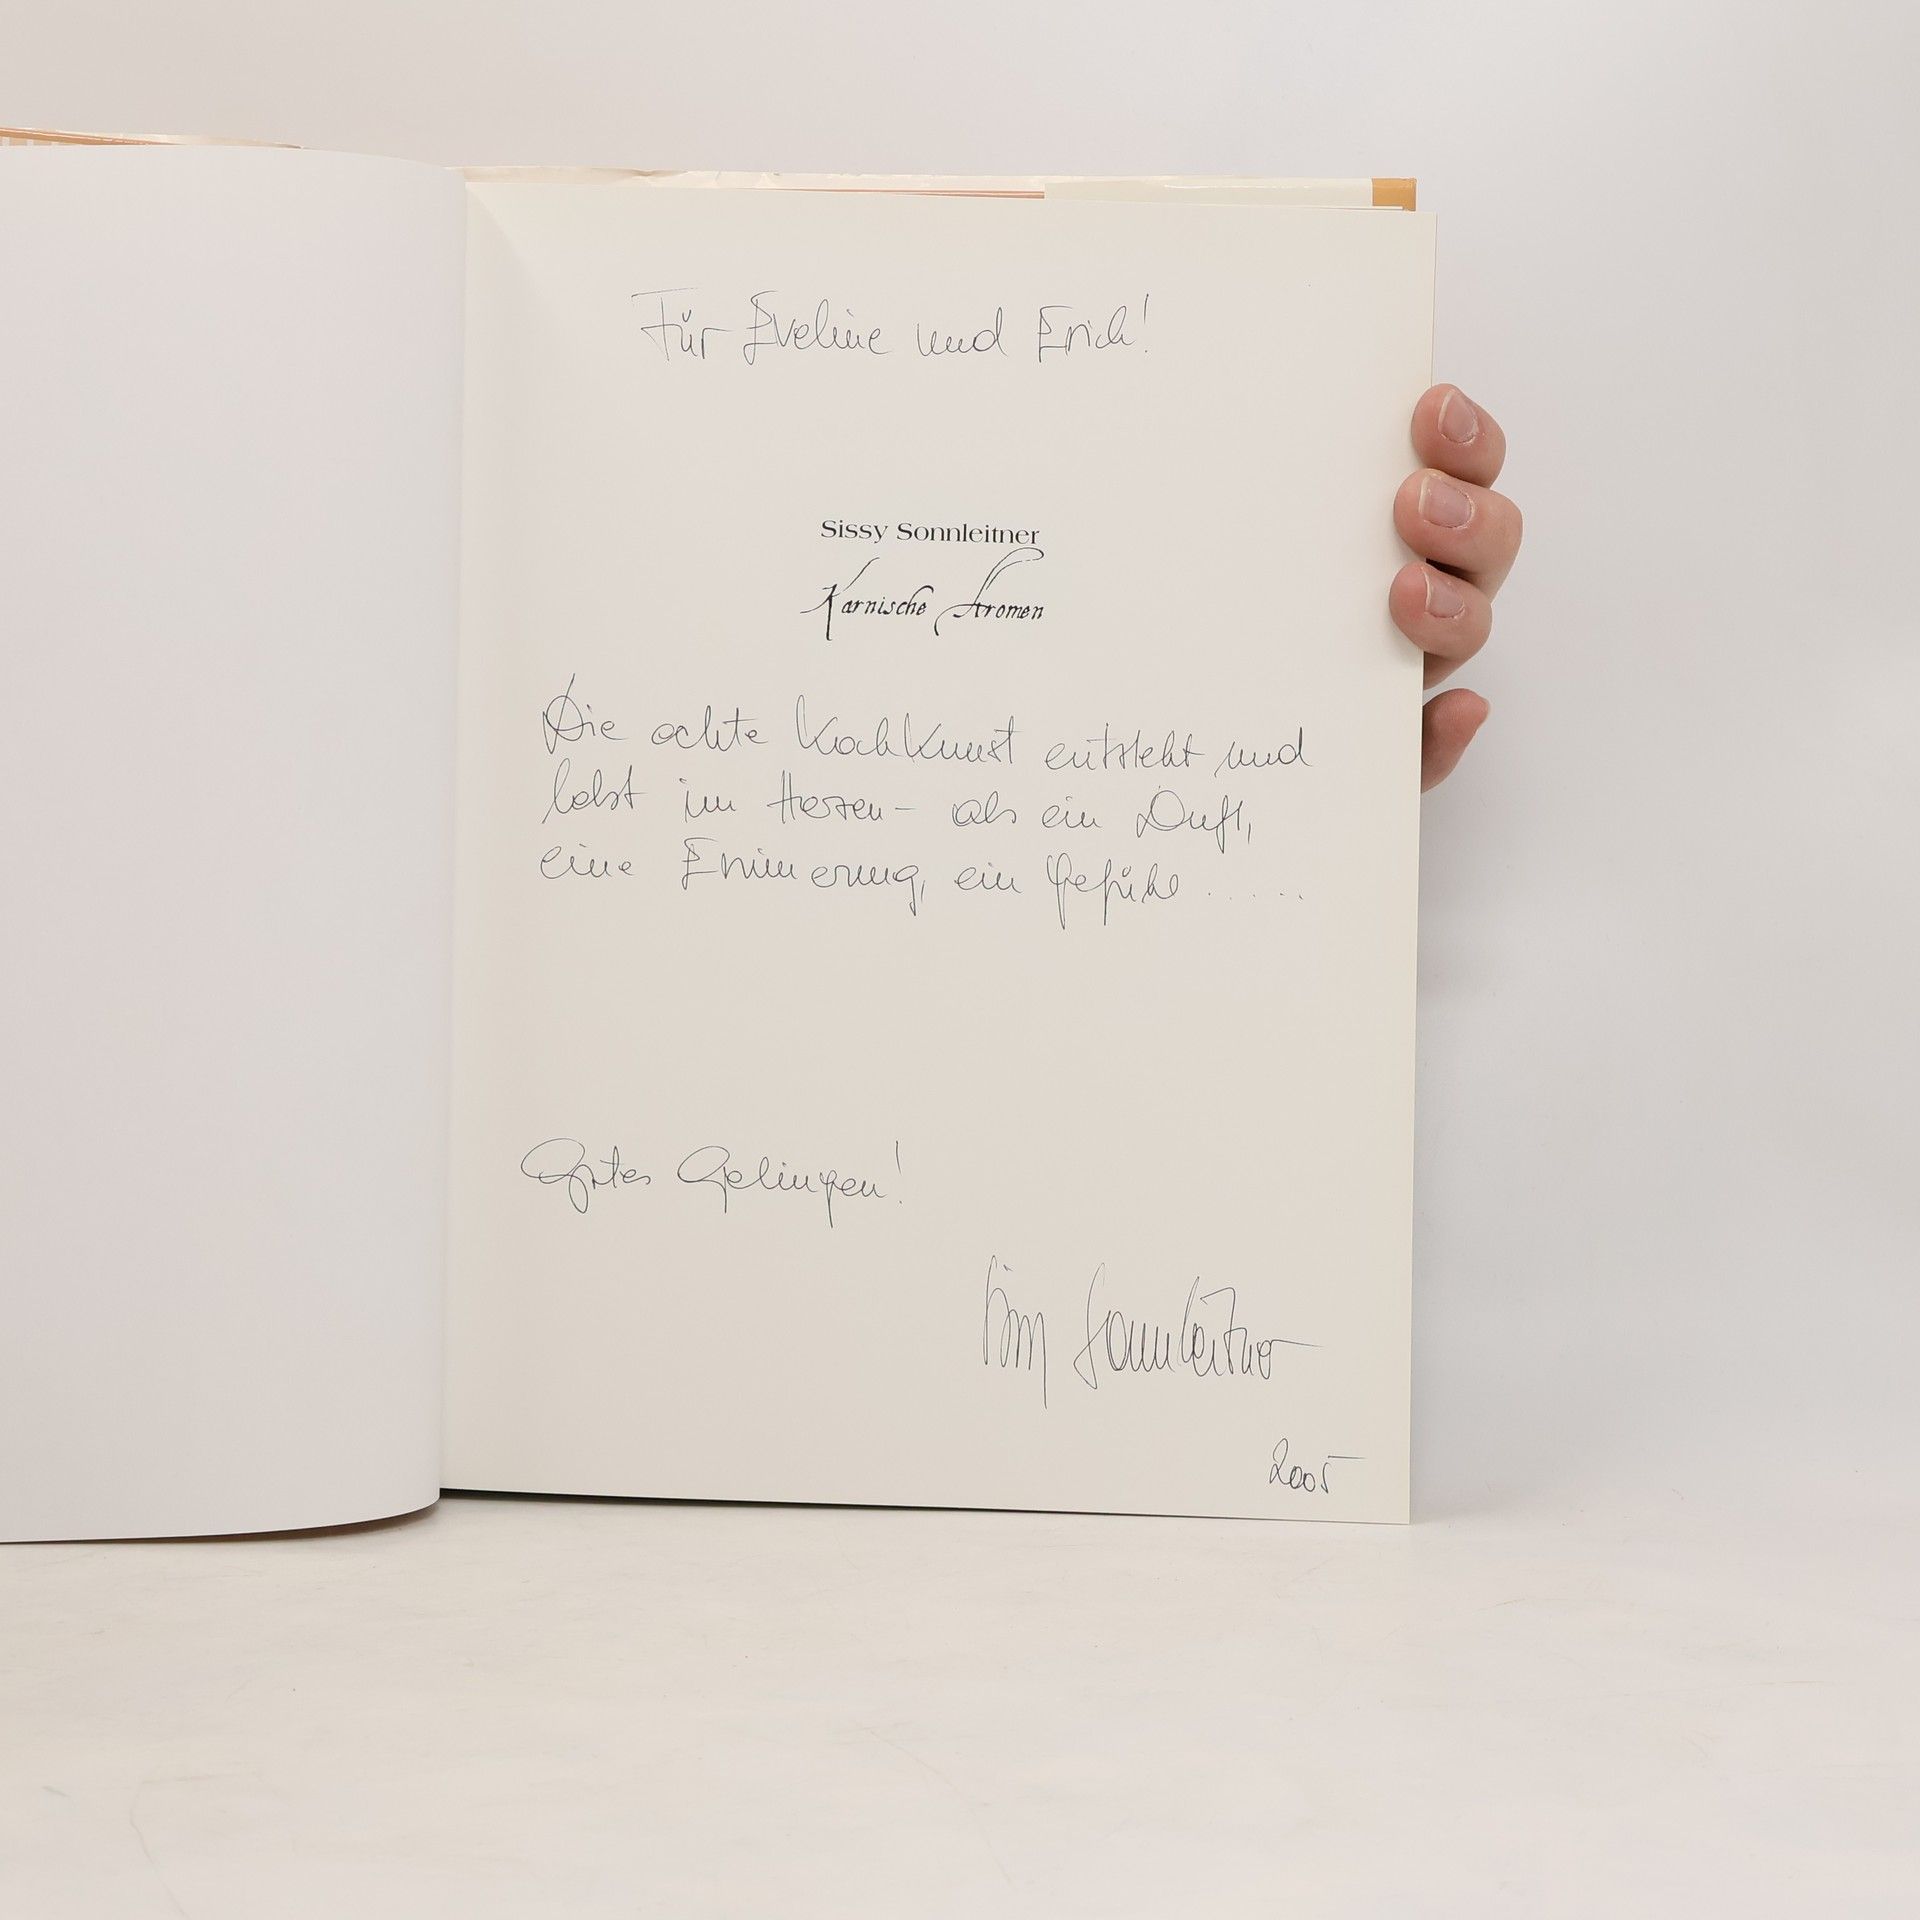 Für Eveline und Erich!
Sissy Sonnleitner
Karnische Aromen
Die echte Kochkunst entsteht und
lebt im Herzen - als ein Duft,
eine Erinnerung, ein Gefühl ......
Gutes Gelingen!
Sissy Sonnleitner
2005